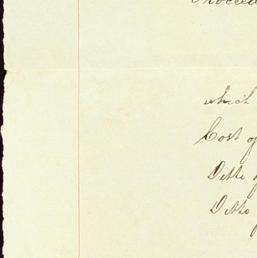 Proceed
which
Cost of
Ditto
Ditto